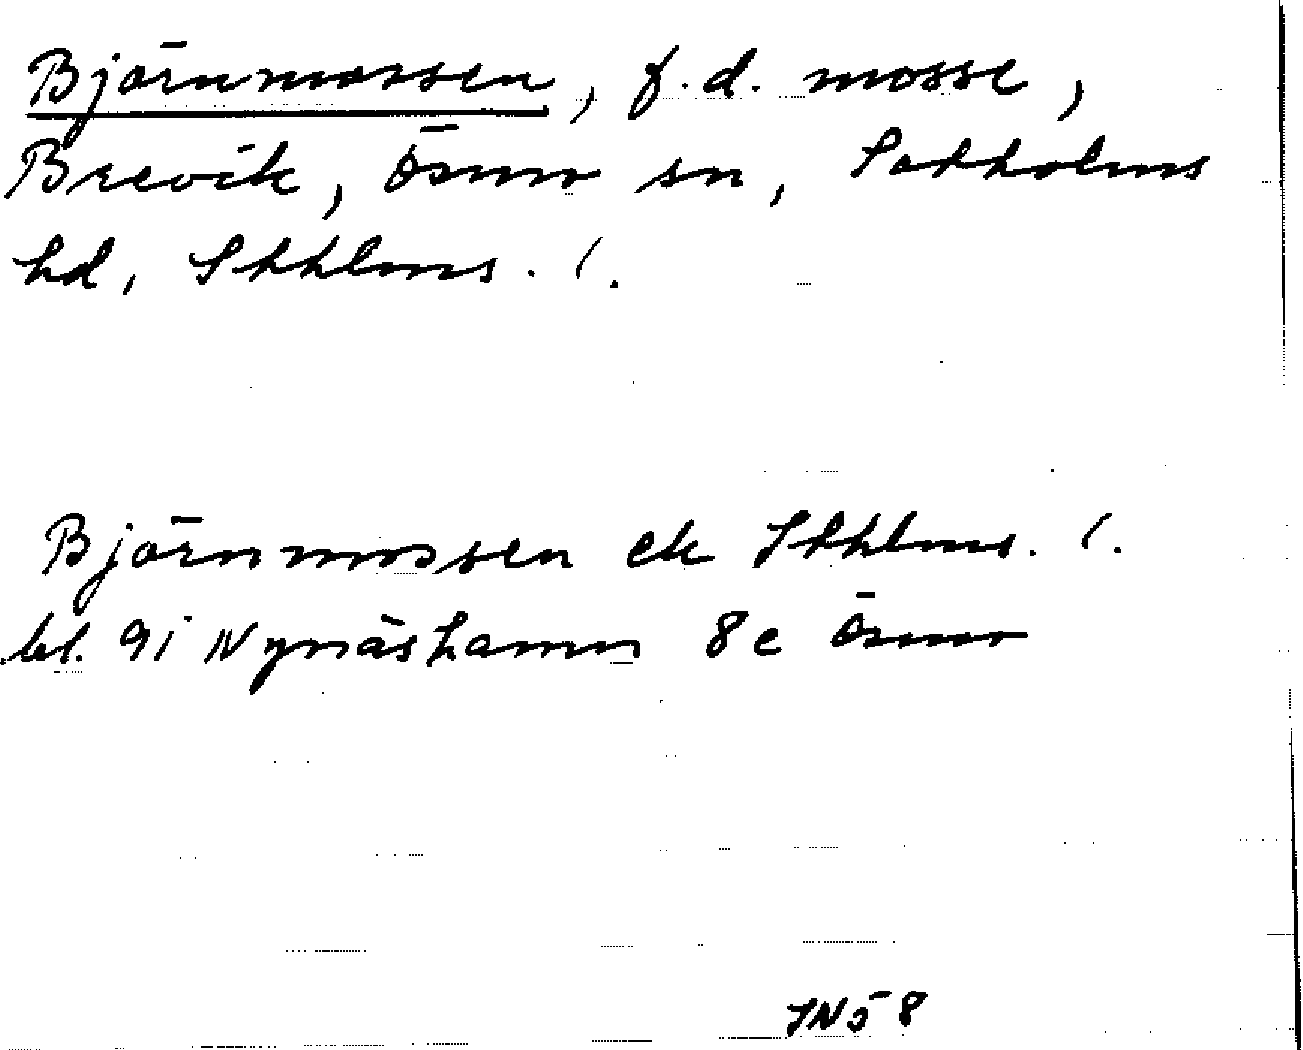 Björnmossen, f.d. mosse,
Brevik, Ösmo sn, Sotholms
hd, Sthlms. l.
Björnmossen ek Sthlms. l.
bl. 9i Nynäshamn 8e Ösmo
IN58